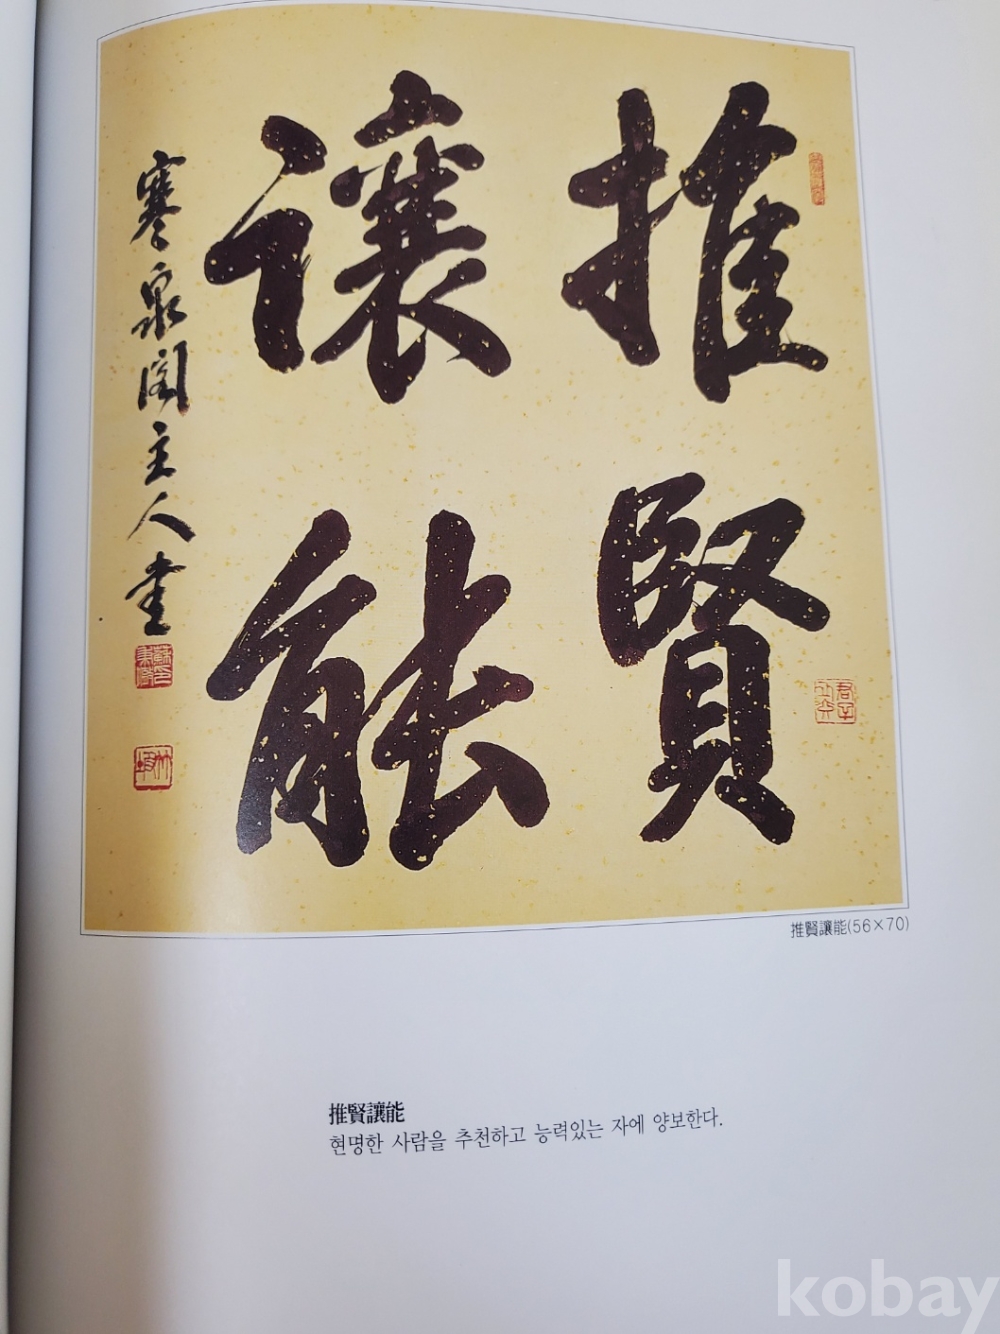 推賢
讓能
寒泉閣主人書
推賢讓能(56×70)
推賢讓能
현명한 사람을 추천하고 능력있는 자에 양보한다.
kobay